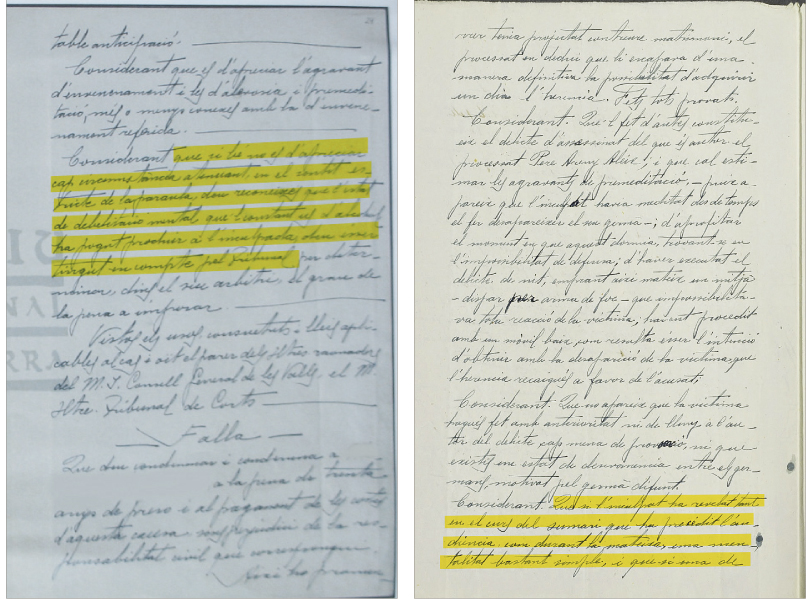 24
table anticipació.
Considerant que es d'apreciar l'agravant
d'envenenament i les d'alevosia i premedi-
tació, més o menys conexes amb la d'envene-
nament referida.
Considerant que si be no es d'apreciar
cap circumstància atenuant, en el sentit es-
tricte de la paraula, deu reconeixes que l'estat
de debilitació mental, que l'constant us d'alcohol
ha pogut produir a l'inculpada, deu esser
tingut en compte pel Tribunal per deter-
minar, dins el seu arbitre, el grau de
la pena a imposar.
Vistos els usos, consuetuts i lleis apli-
cables al cas i oit el parer dels Iltres raonadors
del M. I. Consell General de les Valls, el M.
Iltre. Tribunal de Corts
Falla
Que deu condemnar i condemna a
a la pena de trenta
anys de preso i al pagament de les costes
d'aquesta causa sens perjudici de la res-
ponsabilitat civil que correspongui.
Aixi ho pronun
ver tenia projectat contreure matrimoni, el
processat en deduí que li escapava d'una
manera definitiva la possibilitat d'adquirir
un dia l'herencia. Fets tots provats.
Considerant: Que l fet d'autes constitu-
eix el delicte d'assassinat del que és autor el
processat Pere Areny Aleix, i que cal esti-
mar les agravants de premeditació, — puix a-
pareix que l'inculpat havia meditat desde temps
el fer desapareixer el seu germà —; d'aprofitar
el moment en que aquest dormia, trovant-se en
l'impossibilitat de defensa, d'haver executat el
delicte de nit, emprant aixi mateix un mitjà
— dispar per arma de foc — que impossibilita-
va tota reacció de la victima; havent procedit
amb un mòvil baix com resulta esser l'intenció
d'obtenir amb la desaparició de la victima que
l'herencia recaigués a favor de l'acusat.
Considerant: Que no apareix que la victima
hagues fet amb anterioritat ni de lluny a l'au-
tor del delicte cap mena de provocació, ni que
existis un estat de desavenencia entre els ger-
mans, motivat pel germà difunt.
Considerant: Que si l'inculpat ha revelat tant
en el curs del sumari que ha precedit l'au-
diencia com durant la mateixa, una men-
talitat bastant simple, i que si una de